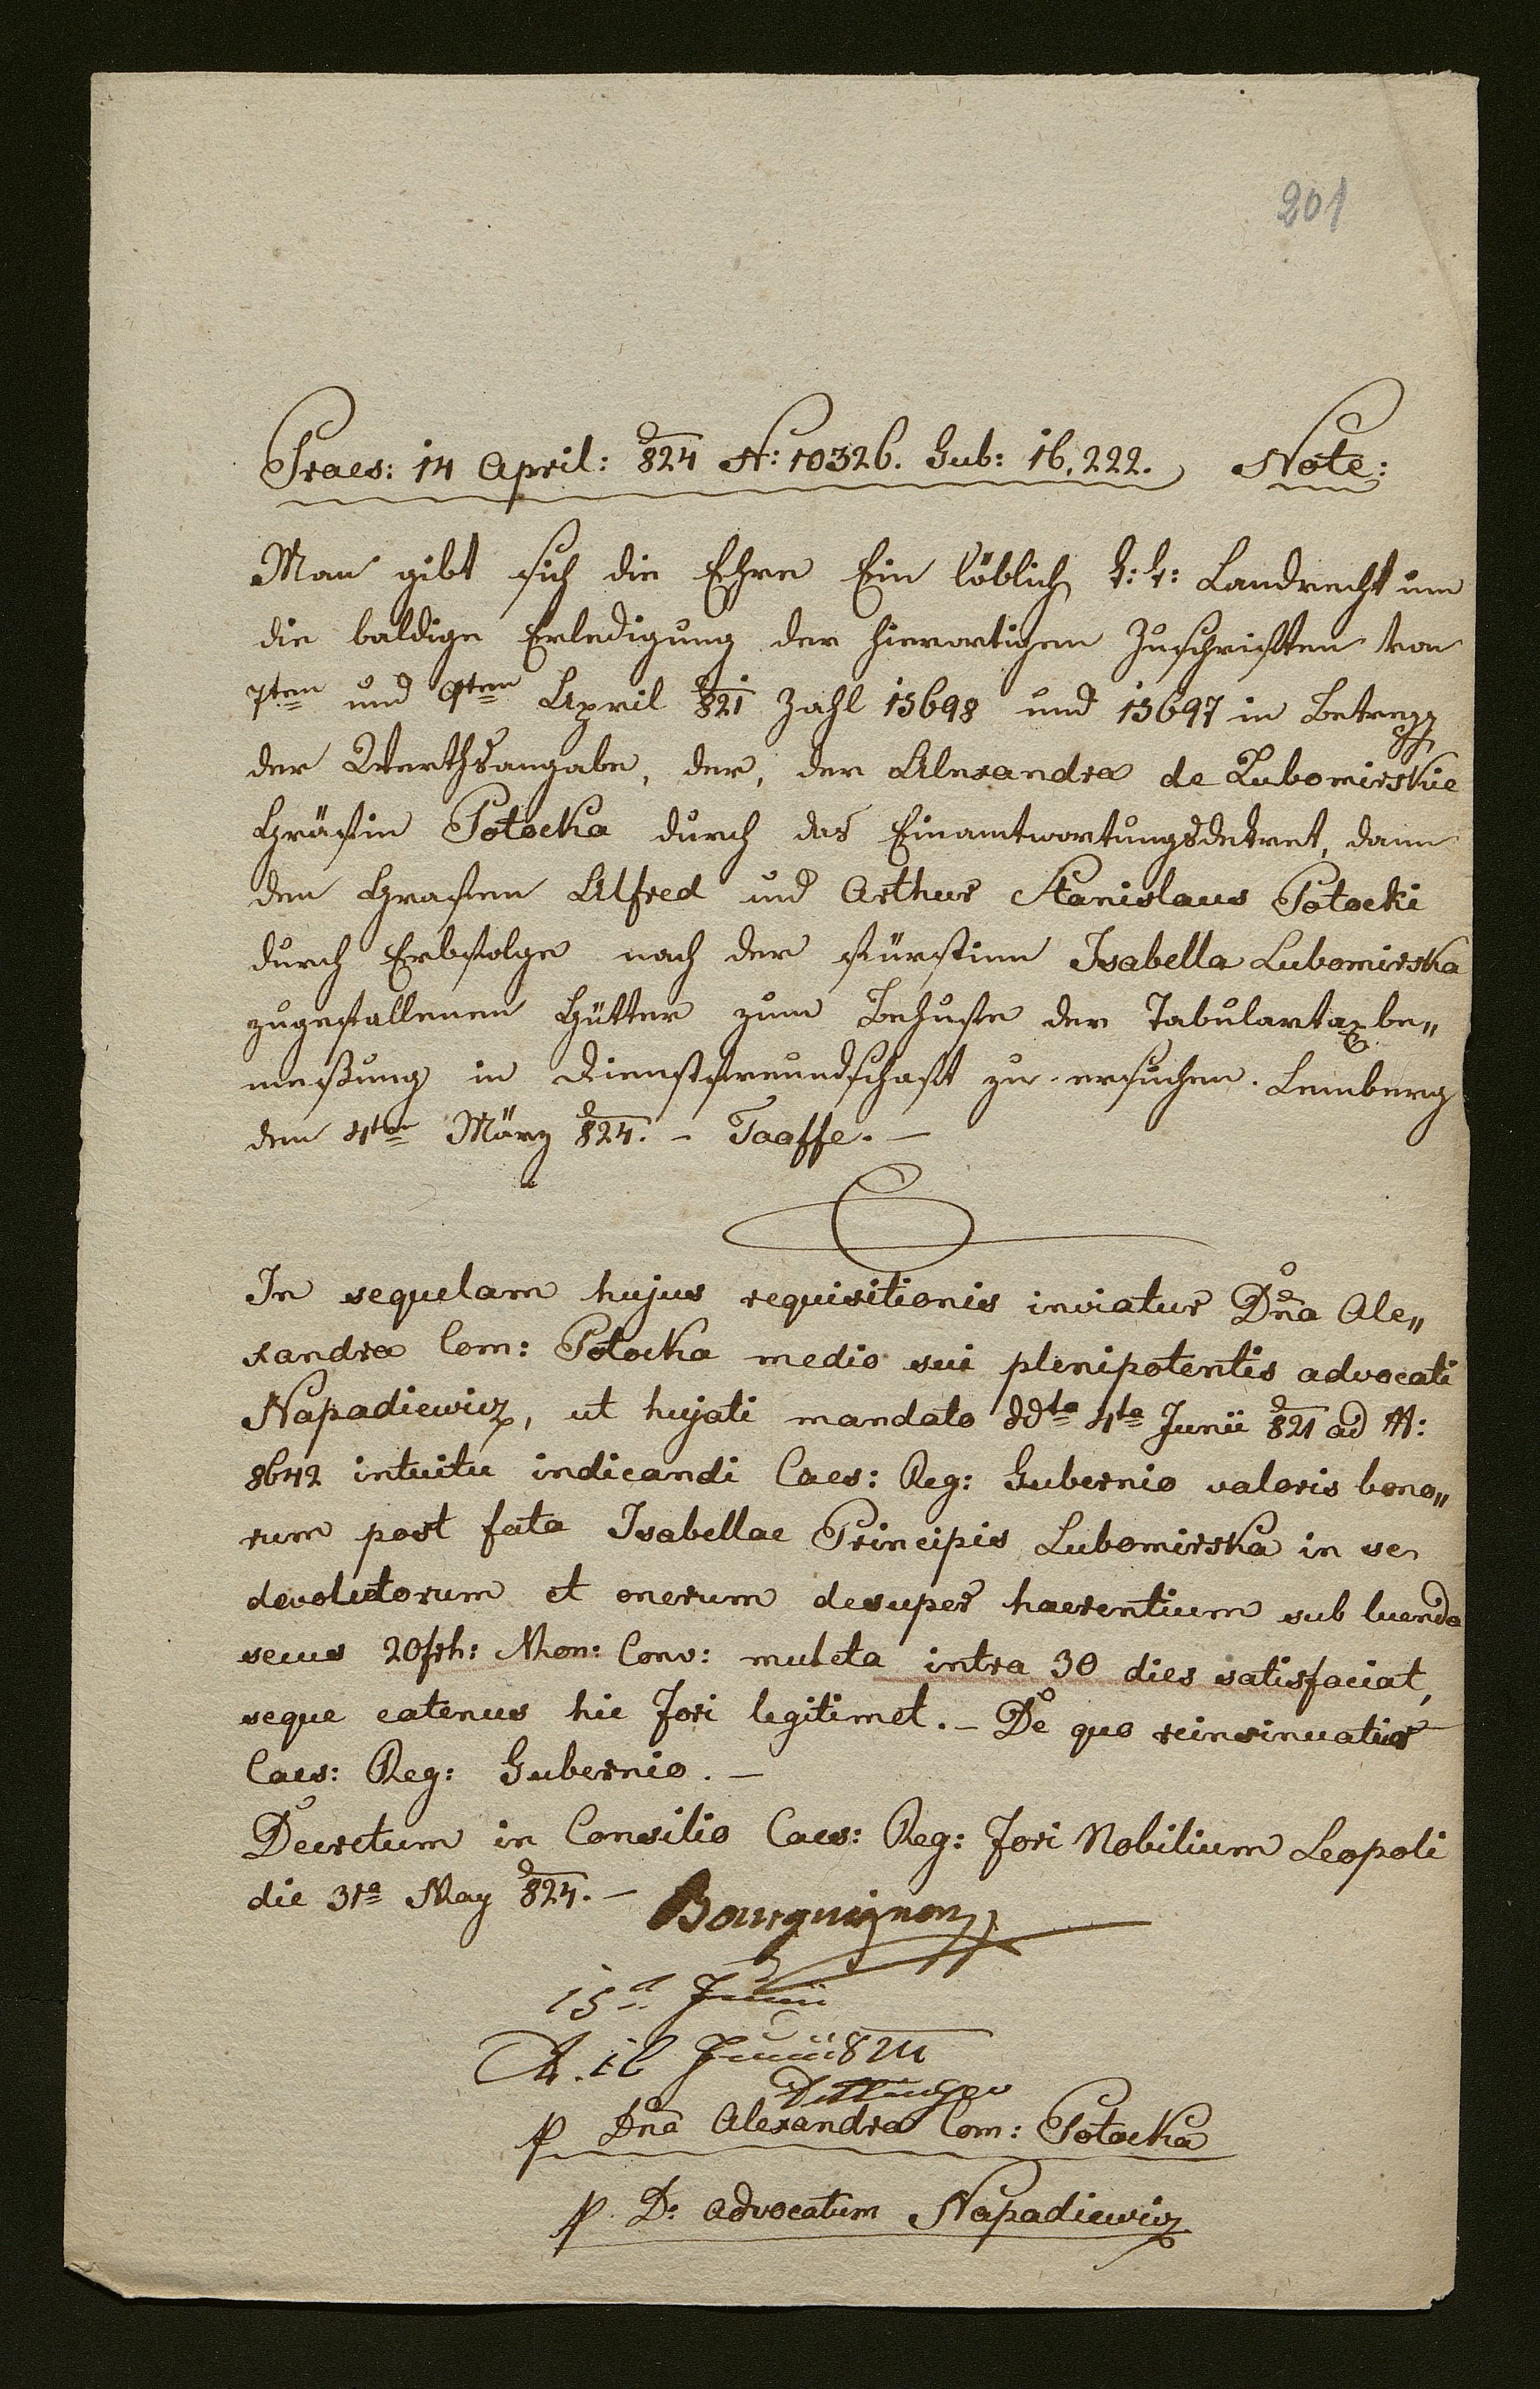 201
Praes: 14 April: 824 N: 10326. Gub: 16,222. Note:
Man gibt sich die Ehre Ein löblich k:k: Landrecht um
die baldige Erledigung der hierortigen Zuschriften von
7ten und 9ten April 821 Zahl 15698 und 15697 in Betreff
der Werthsangabe, der, der Alexandra de Lubomirskie
Gräfin Potocka durch das Einantwortungsdekret, dann
den Grafen Alfred und Arthur Stanislaus Potocki
durch Erbfolge nach der Fürstinn Isabella Lubomirska
zugefallenen Gütter zum Behufe der Tabulartaxbe„
meßung in Dienstfreundschaft zu ersuchen. Lemberg
den 4ten März 824. – Taaffe. –
In sequelam hujus requisitionis inviatur Dna Ale„
xandra Com: Potocka medio sui plenipotentis advocati
Napadiewicz, ut hujati mandato ddto 4ta Junii 821 ad N:
8642 intuitu indicandi Caes: Reg: Gubernio valoris bono„
rum post fata Isabellae Principis Lubomirska in se
devolutorum et onerum desuper haerentium sub luenda
secus 20 frh: Mon: Conv: mulcta intra 30 dies satisfaciat,
seque eatenus hic Fori legitimet. – De quo reinsinuatur
Caes: Reg: Gubernio. –
Decretum in Consilio Caes: Reg: Fori Nobilium Leopoli
die 31a May 824. – Bourguignon
15a Junii
16 Junii 824
p Dna Alexandra Com: Potocka
p. D: Advocatum Napadiewicz